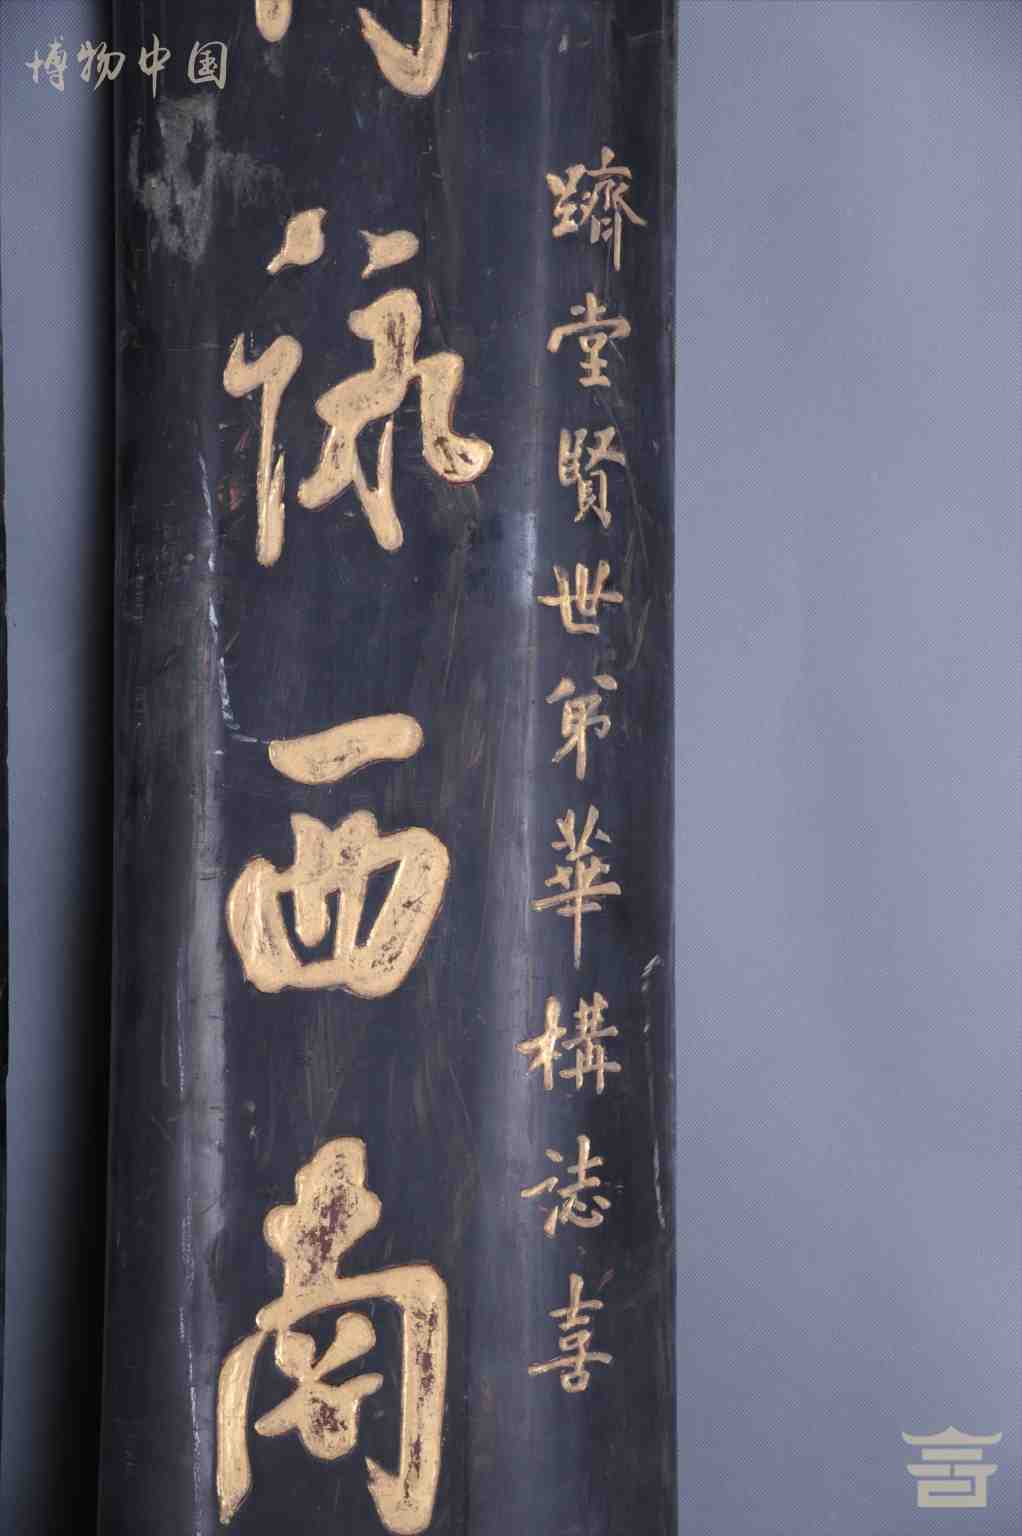 博物中国
躋堂賢世弟華構誌喜
詠西南